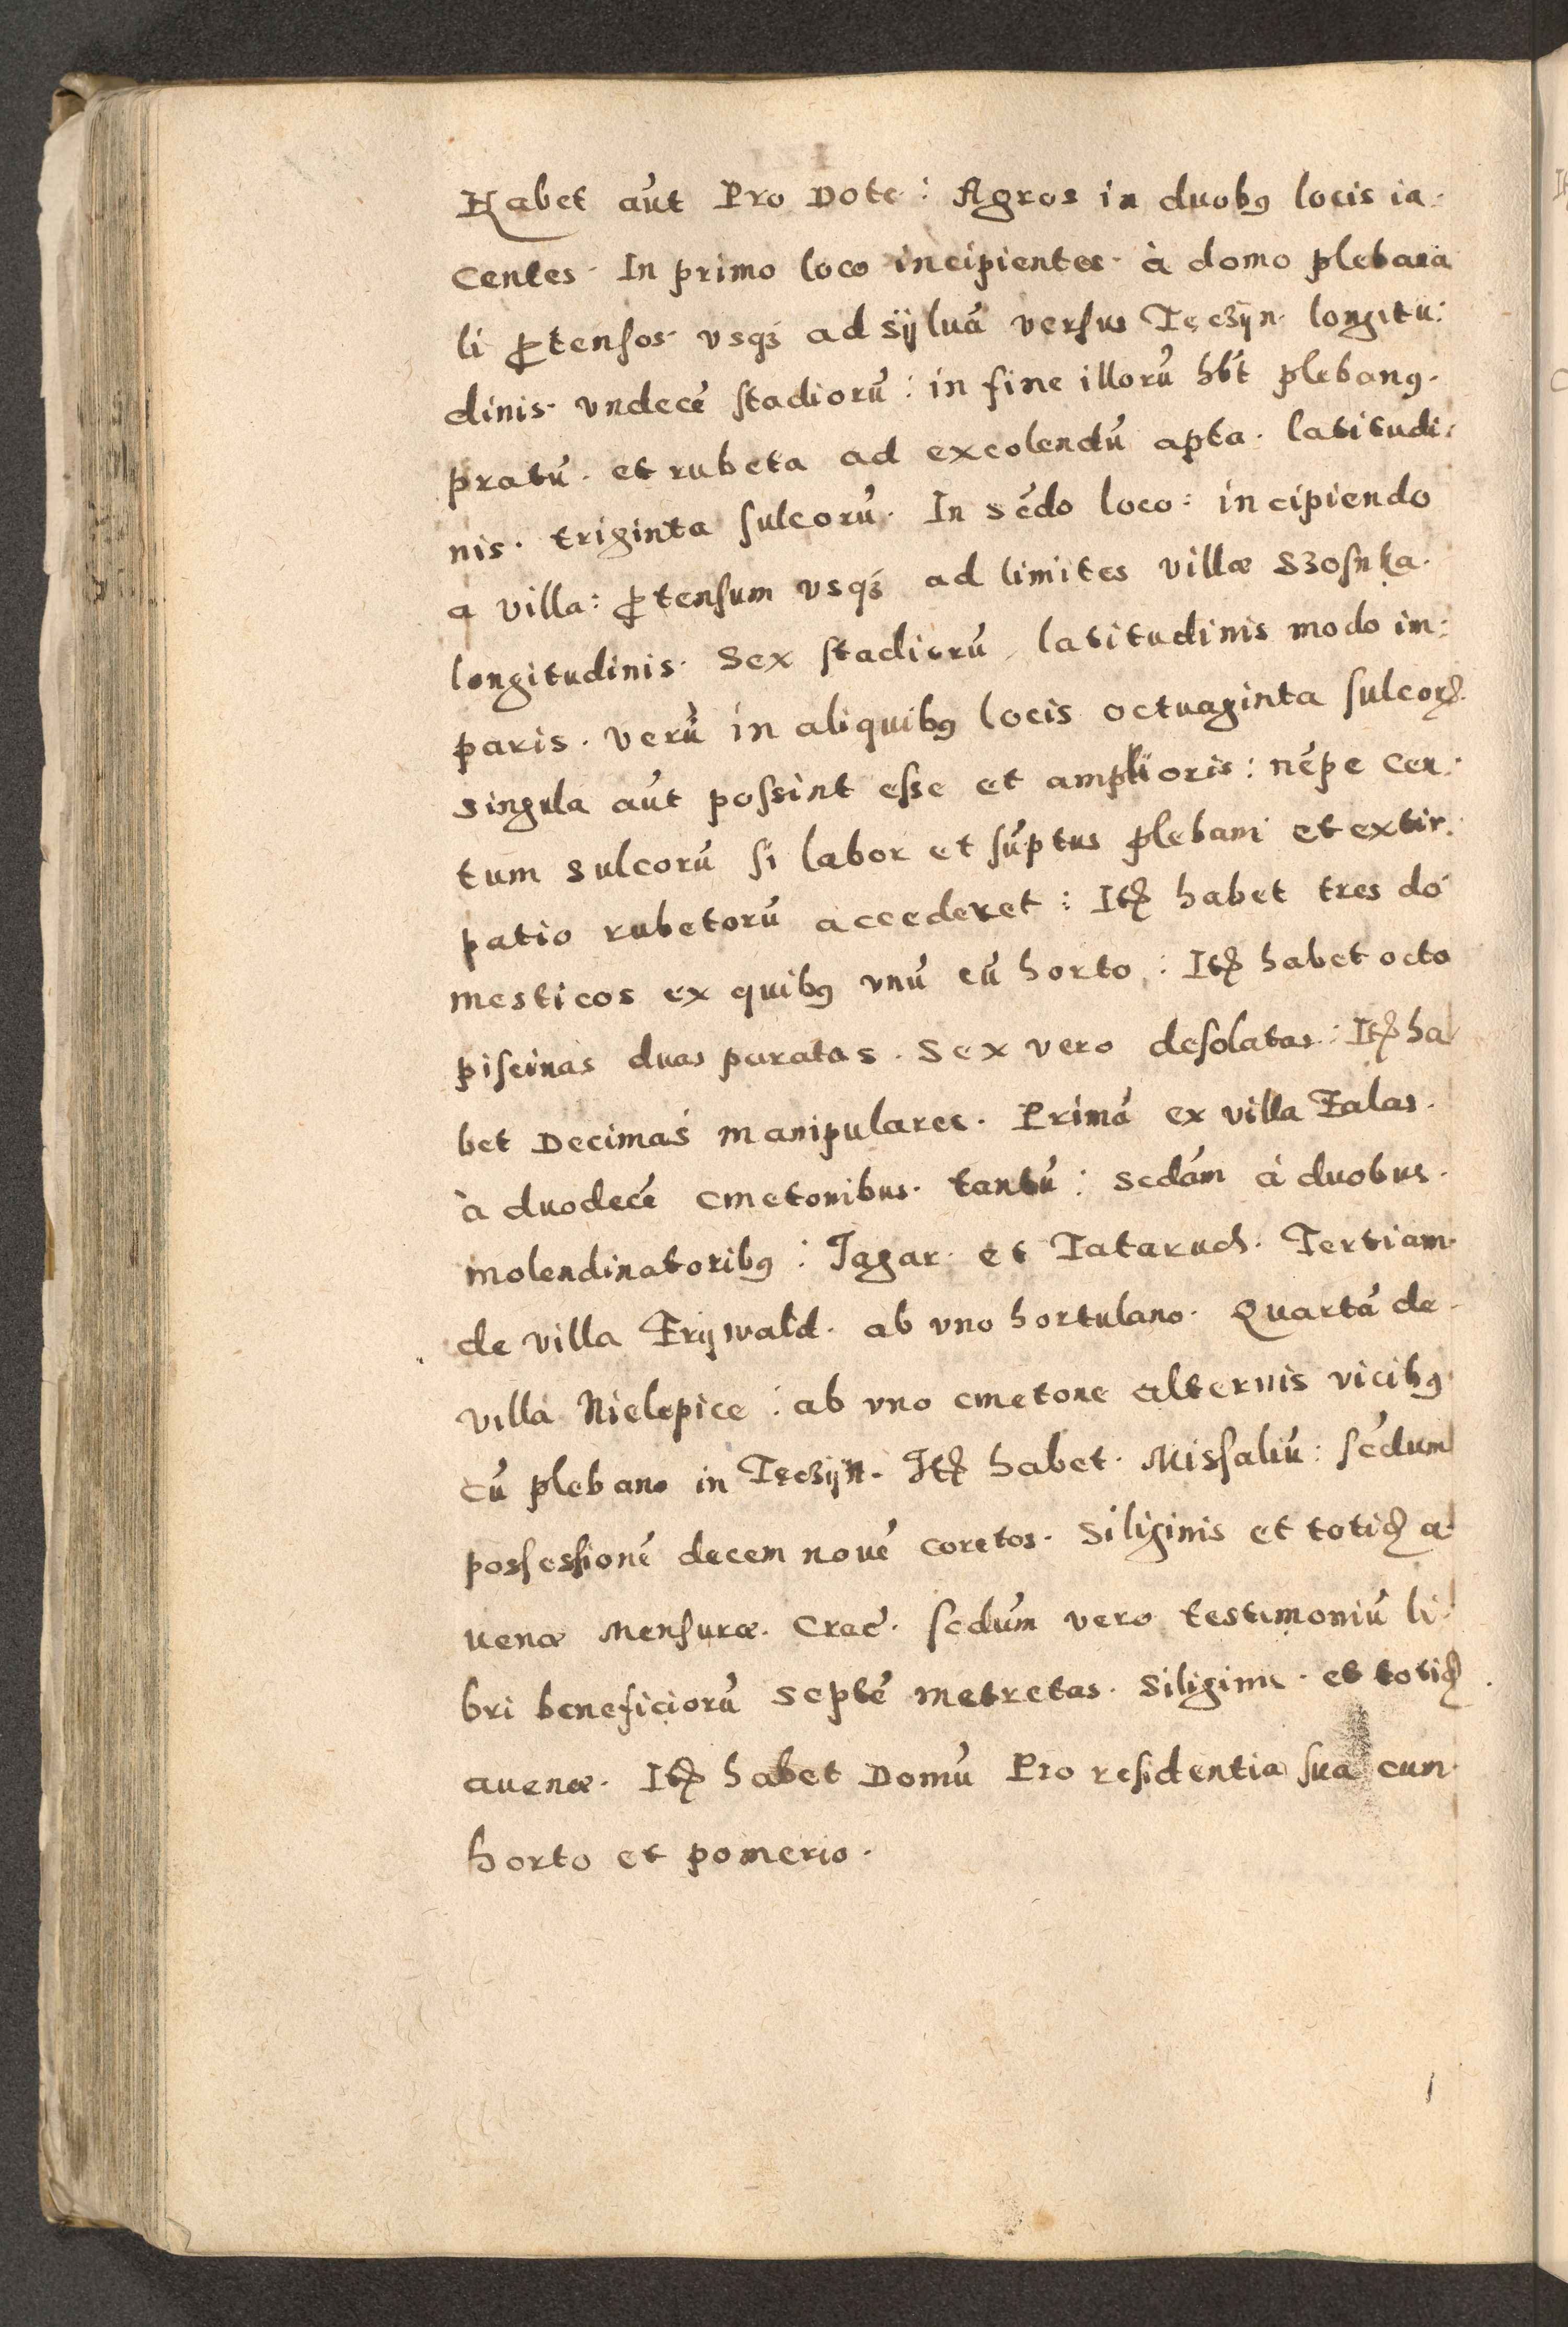 Habet aūt Pro Dote: Agros in duobꝰ locis ia-
centes. In primo loco incipientes. à domo plebana
li ꝓtensos. vsqꝫ ad sÿluā versus Tęczÿn. longitu:
dinis. vndecē stadiorū: in fine illorū hb̄t plebanꝰ.
pratū. et rubeta ad excolendū apta. latitudi:
nis. triginta sulcorū. In sēdo loco: incipiendo
a villa: ꝓtensum vsqꝫ ad limites villæ Szosnka.
longitudinis. Sex stadiorū, latitudinis modo im:
paris. verū in aliquibꝰ locis octuaginta sulcorꝝ.
singula aūt possint esse et amplioris: nēpe cen:
tum sulcorū si labor et sūptus plebani et extir:
patio rubetorū accederet: Itꝫ habet tres do
mesticos ex quibꝰ vnū cū horto: Itꝫ habet octo
piscinas duas paratas. Sex vero desolatas: Itꝫ ha
bet Decimas manipulares. Primā ex villa Zalas.
à duodecē cmetonibus. tantū: Sedām à duobus.
molendinatoribꝰ: Jagar. et Tataruch. Tertiam.
de villa Frÿwald. ab vno hortulano. Quartā de.
villa Nielepice: ab vno cmetone alternis vicibꝰ
cū plebano in Tęczÿn. Itꝫ habet. Missaliū: sēdum
possessionē decem nouē coretos. Siliginis et totidꝫ a:
uenæ Mensuræ. Crac̄. sedūm vero testimoniū li:
bri beneficiorū septē metretas. Siliginis. et totidꝫ.
auenæ. Itꝫ habet Domū Pro residentia sua cum.
horto et pomerio.